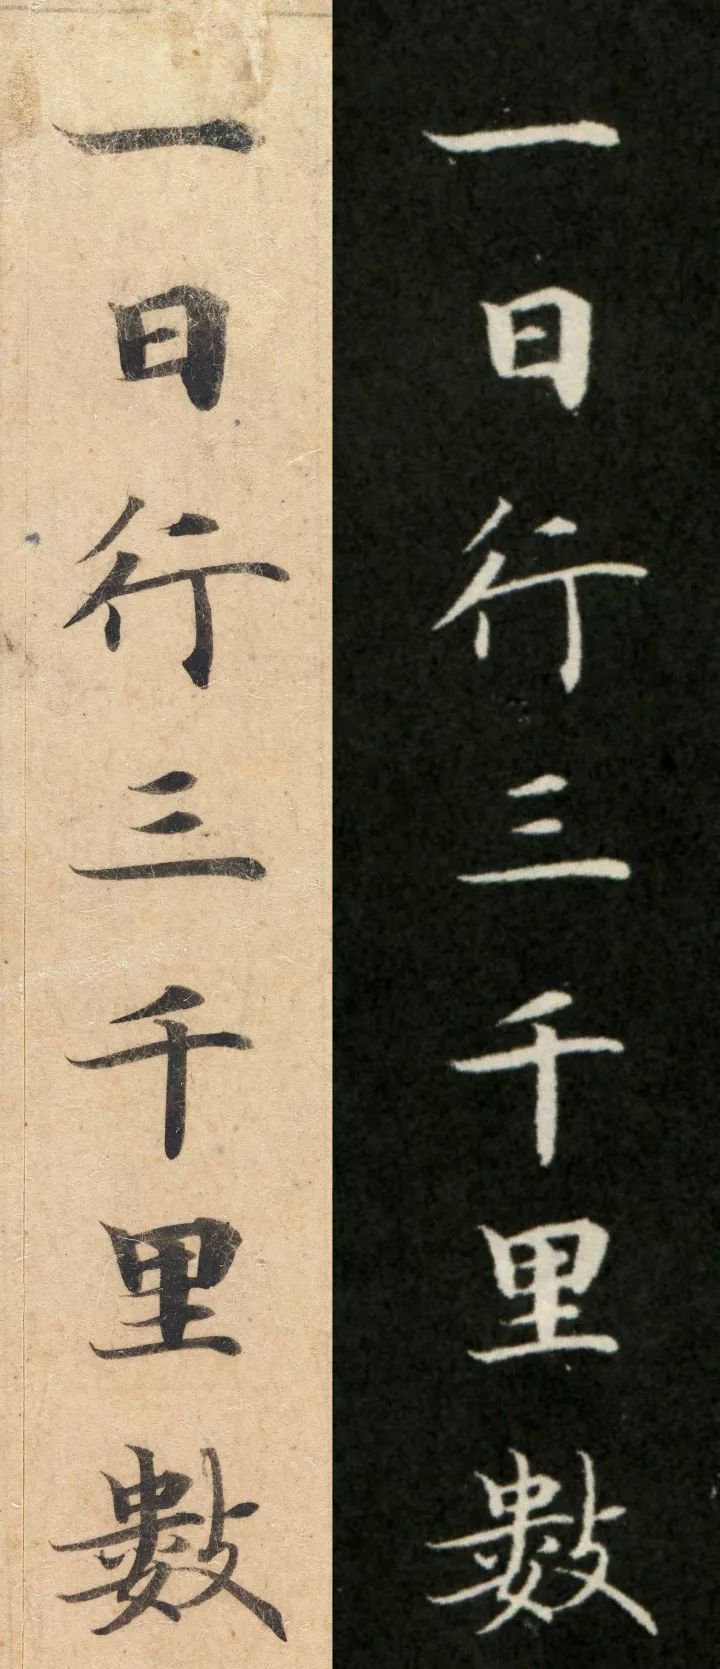 一日行三千里數
一日行三千里數